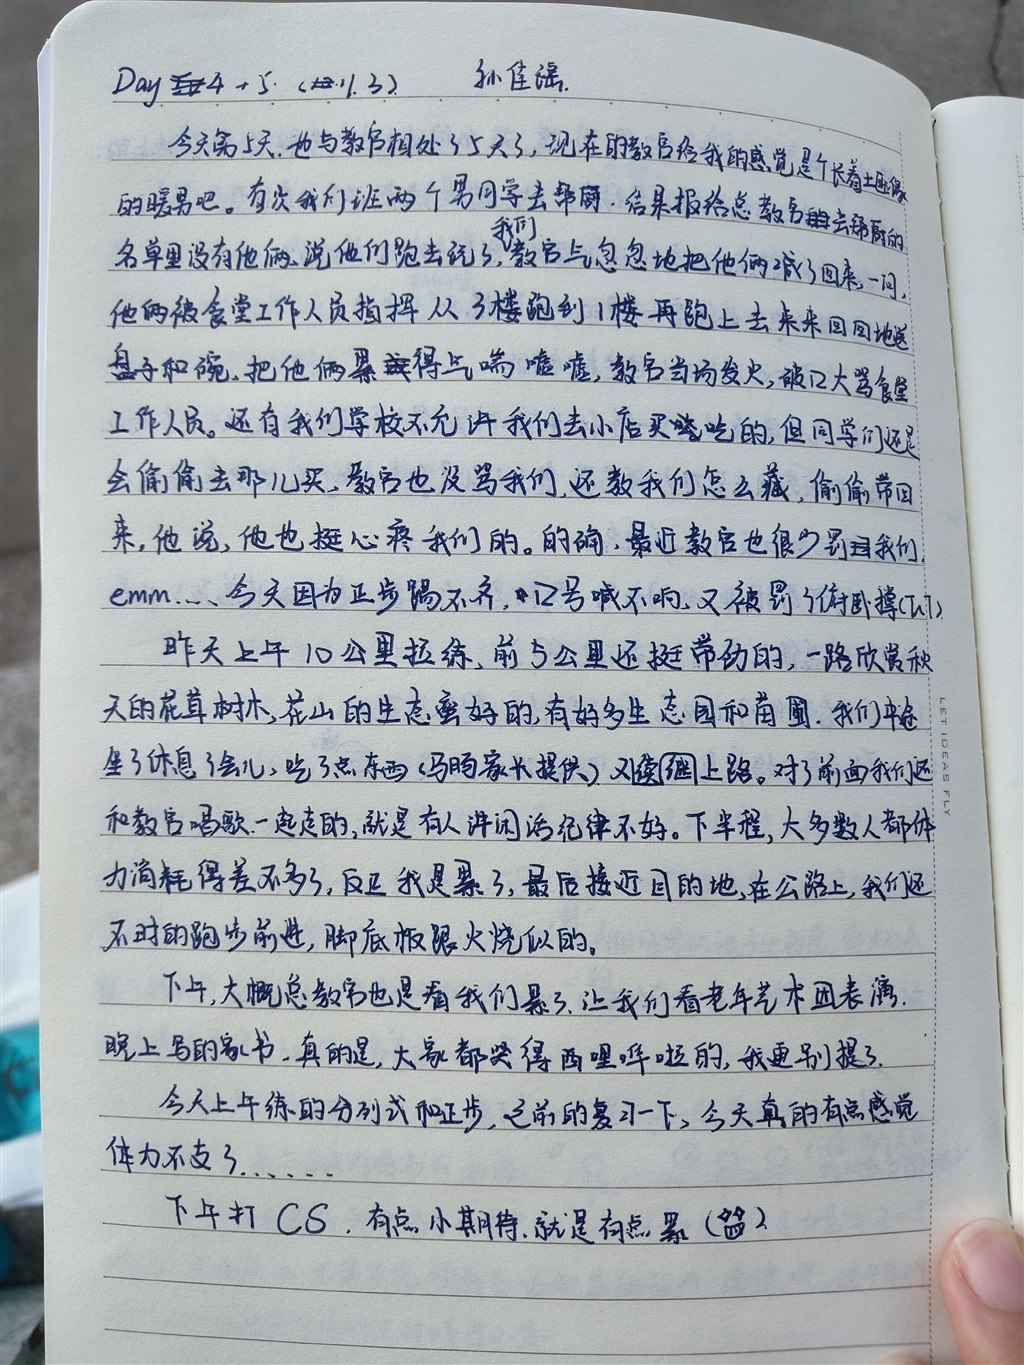 Day 4+5. (11.3) 孙佳瑶.
今天第5天.也与教官相处了5天了,现在的教官给我的感觉是个长着土匪像
的暖男吧。有次我们班两个男同学去帮厨.结果报给总教官去帮厨的
名单里没有他俩.说他们跑去玩了,我们教官气忽忽地把他俩喊了回来,一问,
他俩被食堂工作人员指挥从3楼跑到1楼再跑上去来来回回地送
盘子和碗、把他俩累得气喘嘘嘘,教官当场发火,破口大骂食堂
工作人员。还有我们学校不允许我们去小店买吃的,但同学们还是
会偷偷去那儿买,教官也没骂我们,还教我们怎么藏,偷偷带回
来,他说,他也挺心疼我们的。的确.最近教官也很少罚我们.
emm.... 今天因为正步踢不齐,口号喊不响、又被罚了俯卧撑(TwT)
昨天上午10公里拉练,前5公里还挺带劲的,一路欣赏秋
天的花草树木,花山的生态蛮好的,有好多生态园和苗圃.我们中途
坐了休息了会儿,吃了点东西(马旸家长提供)又继续上路。对了前面我们还
和教官唱歌.一起走的,就是有人讲闲话纪律不好。下半程,大多数人都体
力消耗得差不多了,反正我是累了,最后接近目的地,在公路上,我们还
不时的跑步前进,脚底板跟火烧似的。
下午,大概总教官也是看我们累了.让我们看老年艺术团表演.
晚上写的家书.真的是,大家都哭得西哩哗啦的,我更别提了.
今天上午练的分列式和正步,之前的复习一下,今天真的有点感觉
体力不支了......
下午打CS.有点小期待.就是有点累(
LET IDEAS FLY